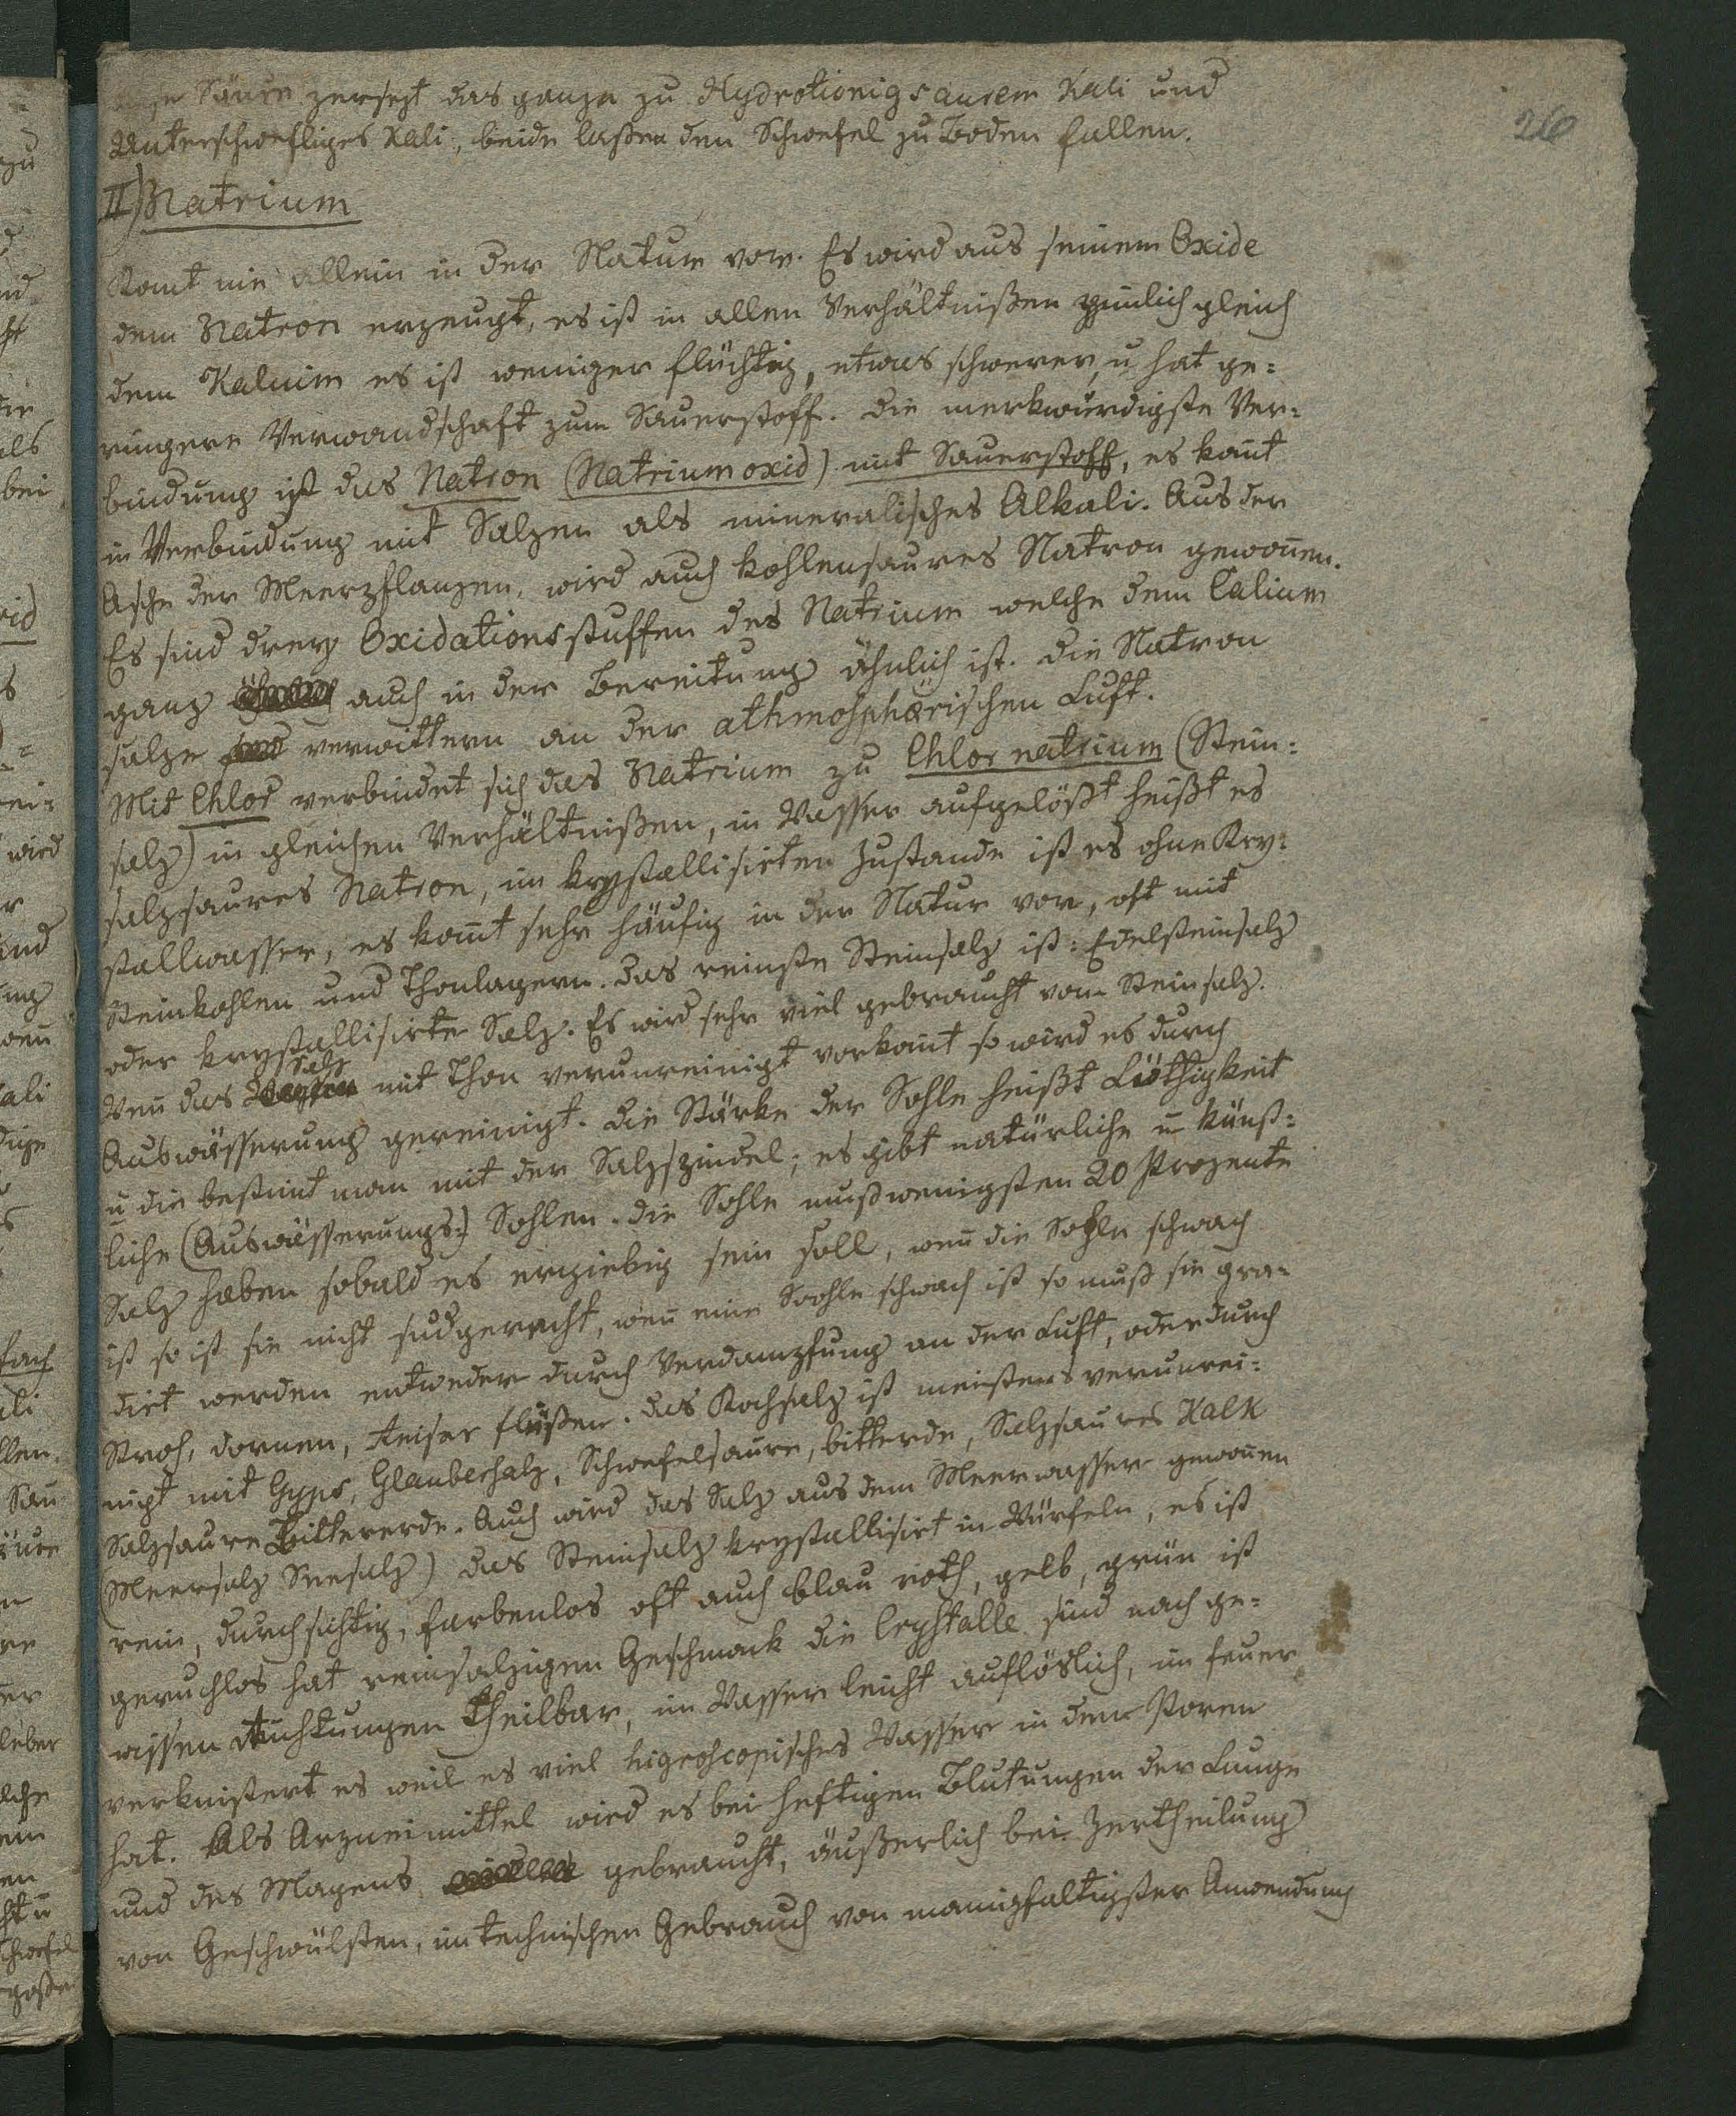 26
Säure zersezt das ganze zu Hydrotionigsaurem Kali und
Unterschwefliges Kali, beide laßen den Schwefel zu Boden fallen.
II) Natrium
Komt nie allein in der Natur vor. Es wird aus seinem Oxide
dem Natron erzeugt, es ist in allen Verhältnißen zimlich gleich
dem Kalium es ist weniger flüchtig, etwas schwerer, u hat ge=
ringere Verwandschaft zum Sauerstoff. Die merkwürdigste Ver=
bindung ist das Natron (Natriumoxid) mit Sauerstoff, es komt
in Verbindung mit Salzen als mineralisches Alkali. Aus der
Asche der Meerpflanzen, wird auch kohlensaures Natron gewonen.
Es sind drey Oxidationsstuffen des Natrium welche dem Calium
ganz auch in der Bereitung ähnlich ist. Die Natron
salze verwittern an der athmosphærischen Luft.
Mit Chlor verbindet sich das Natrium zu Chlor natrium (Stein=
salz) in gleichen Verhältnißen, in Wasser aufgelößt heißt es
salzsaures Natron, im krystallisirten Zustande ist es ohne Kry=
stallwasser, es komt sehr häufig in der Natur vor, oft mit
Steinkohlen und Thonlagern. Das reinste Steinsalz ist: Edelsteinsalz
oder krystallisirte Salz. Es wird sehr viel gebraucht vom Steinsalz.
Wen das Salz mit Thon verunreinigt vorkomt so wird es durch
Auswässerung gereinigt. Die Stärke der Sohle heißt Löthigkeit
u die bestimt man mit der Salzspindel; es gibt natürliche u künst=
liche (Auswässerungs:) Sohlen. Die Sohle muß wenigsten 20 Prozente
Salz haben sobald es ergiebig sein soll, wen die Sohle schwach
ist so ist sie nicht sudgerecht, wen eine Soohle schwach ist so muß sie gra=
dirt werden entweder durch Verdampfung an der Luft, oder durch
Stroh, dornen, Reiser flüßen. Das Kochsalz ist meistens verunrei=
nigt mit Gyps, Glaubersalz, Schwefelsaure, bitterde, Salzsaures Kalk
Salzsaure Bittererde. Auch wird das Salz aus dem Meerwasser gewonen
(Meersalz Seesalz) das Steinsalz krystallisirt in Würfeln, es ist
rein, durchsichtig, farbenlos oft auch blau roth, gelb, grün ist
geruchlos hat reinsalzigen Geschmack die Crystalle sind nach ge=
wissen Richtungen theilbar, im Wasser leicht auflöslich, im feuer
verknistert es weil es viel higroscopisches Wasser in den Poren
hat. Als Arzneimittel wird es bei heftigen Blutungen der Lunge
und des Magens gebraucht, äußerlich bei Zertheilung
von Geschwülsten, im technischen Gebrauch von manigfaltigster Anwendung